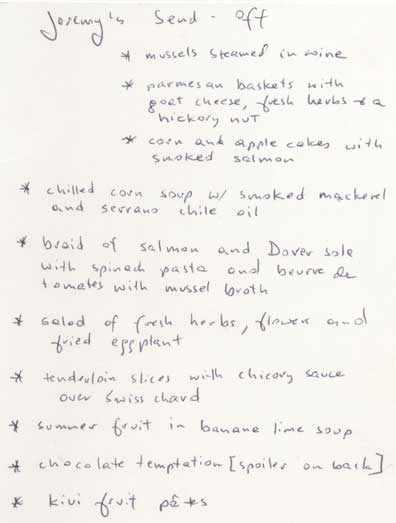 Jeremy's Send-Off
* mussels steamed in wine
* parmesan baskets with
goat cheese, fresh herbs & a
hickory nut
* corn and apple cakes with
smoked salmon
* chilled corn soup w/ smoked mackerel
and serrano chile oil
* braid of salmon and Dover sole
with spinach pasta and beurre de
tomates with mussel broth
* salad of fresh herbs, flowers and
fried eggplant
* tenderloin slices with chicory sauce
over Swiss chard
* summer fruit in banana lime soup
* chocolate temptation [spoiler on back]
* kiwi fruit pâtes